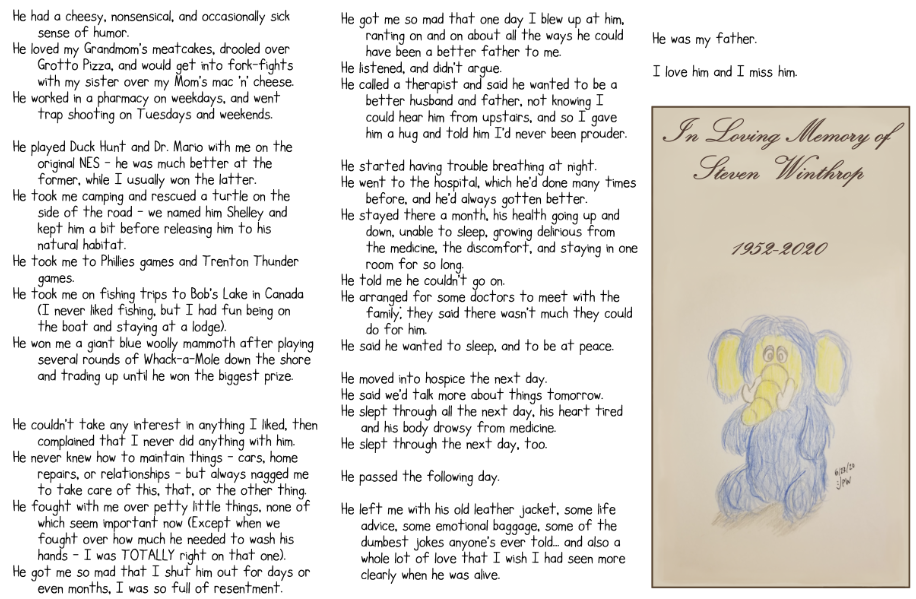 He had a cheesy, nonsensical, and occasionally sick
sense of humor.
He loved my Grandmom's meatcakes, drooled over
Grotto Pizza, and would get into fork-fights
with my sister over my Mom's mac 'n' cheese.
He worked in a pharmacy on weekdays, and went
trap shooting on Tuesdays and weekends.
He played Duck Hunt and Dr. Mario with me on the
original NES - he was much better at the
former, while I usually won the latter.
He took me camping and rescued a turtle on the
side of the road - we named him Shelley and
kept him a bit before releasing him to his
natural habitat.
He took me to Phillies games and Trenton Thunder
games.
He took me on fishing trips to Bob's Lake in Canada
(I never liked fishing, but I had fun being on
the boat and staying at a lodge).
He won me a giant blue woolly mammoth after playing
several rounds of Whack-a-Mole down the shore
and trading up until he won the biggest prize.
He couldn't take any interest in anything I liked, then
complained that I never did anything with him.
He never knew how to maintain things - cars, home
repairs, or relationships - but always nagged me
to take care of this, that, or the other thing.
He fought with me over petty little things, none of
which seem important now (Except when we
fought over how much he needed to wash his
hands - I was TOTALLY right on that one).
He got me so mad that I shut him out for days or
even months, I was so full of resentment.
He got me so mad that one day I blew up at him,
ranting on and on about all the ways he could
have been a better father to me.
He listened, and didn't argue.
He called a therapist and said he wanted to be a
better husband and father, not knowing I
could hear him from upstairs, and so I gave
him a hug and told him I'd never been prouder.
He started having trouble breathing at night.
He went to the hospital, which he'd done many times
before, and he'd always gotten better.
He stayed there a month, his health going up and
down, unable to sleep, growing delirious from
the medicine, the discomfort, and staying in one
room for so long.
He told me he couldn't go on.
He arranged for some doctors to meet with the
family; they said there wasn't much they could
do for him.
He said he wanted to sleep, and to be at peace.
He moved into hospice the next day.
He said we'd talk more about things tomorrow.
He slept through all the next day, his heart tired
and his body drowsy from medicine.
He slept through the next day, too.
He passed the following day.
He left me with his old leather jacket, some life
advice, some emotional baggage, some of the
dumbest jokes anyone's ever told... and also a
whole lot of love that I wish I had seen more
clearly when he was alive.
He was my father.
I love him and I miss him.
In Loving Memory of
Steven Winthrop
1952-2020